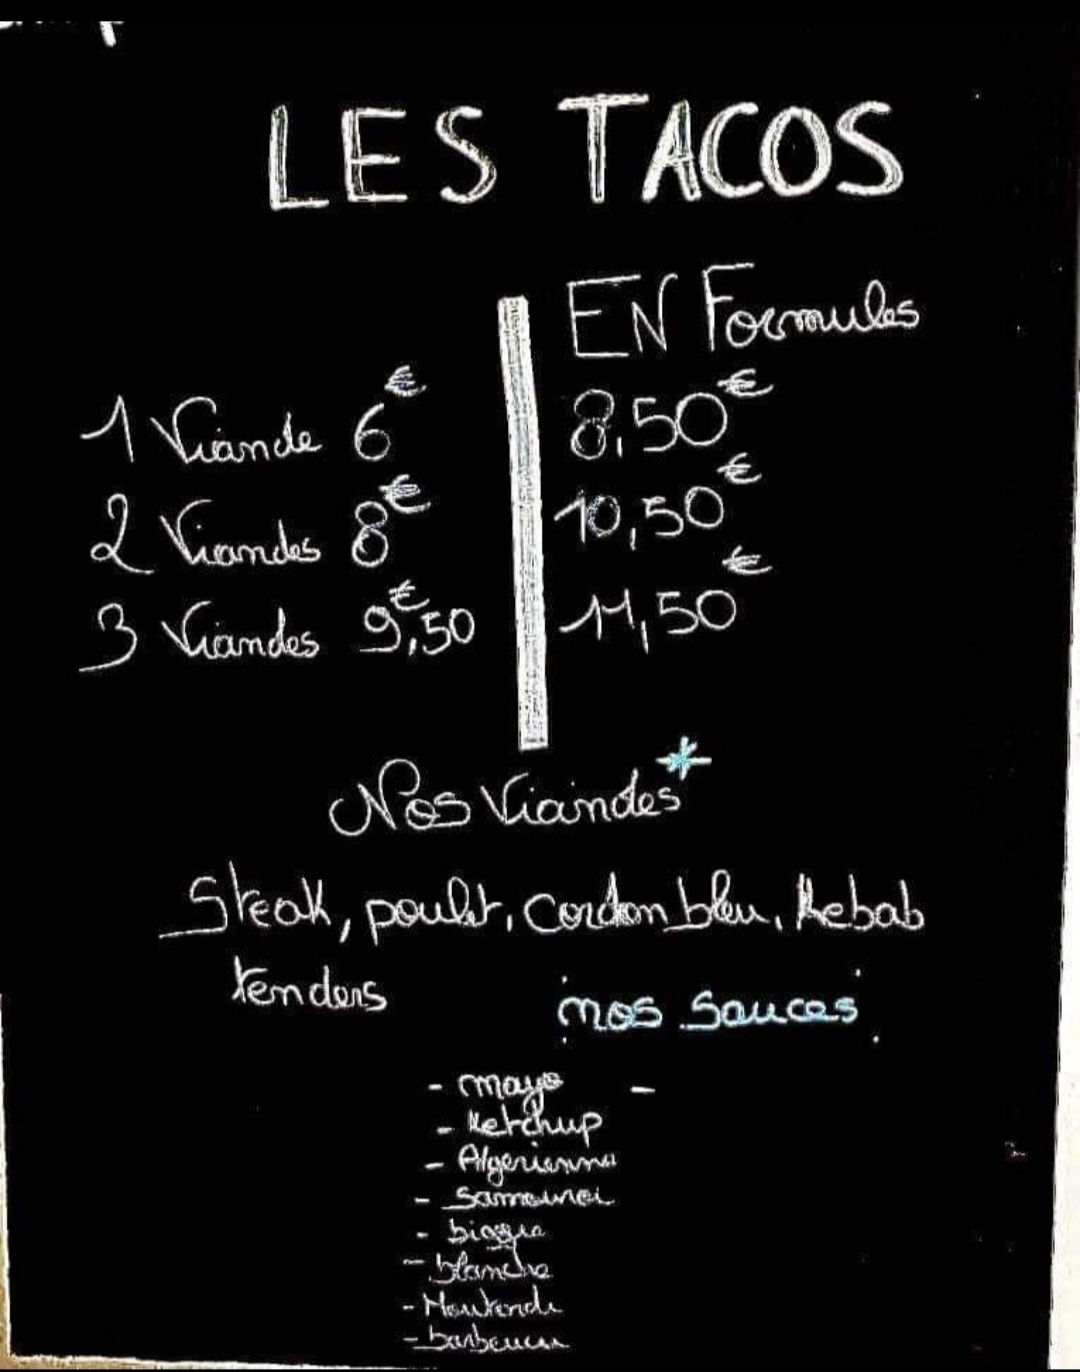 LES TACOS
EN Formules
1 Viande 6€ 8,50€
2 Viandes 8€ 10,50€
3 Viandes 9€,50 11,50€
Nos Viandes*
Steak, poulet, Cordon bleu, Kebab
tenders
nos sauces
- mayo -
- Ketchup
- Algerienne
- Samourai
- biggy
- blanche
- Moutarde
- barbecue